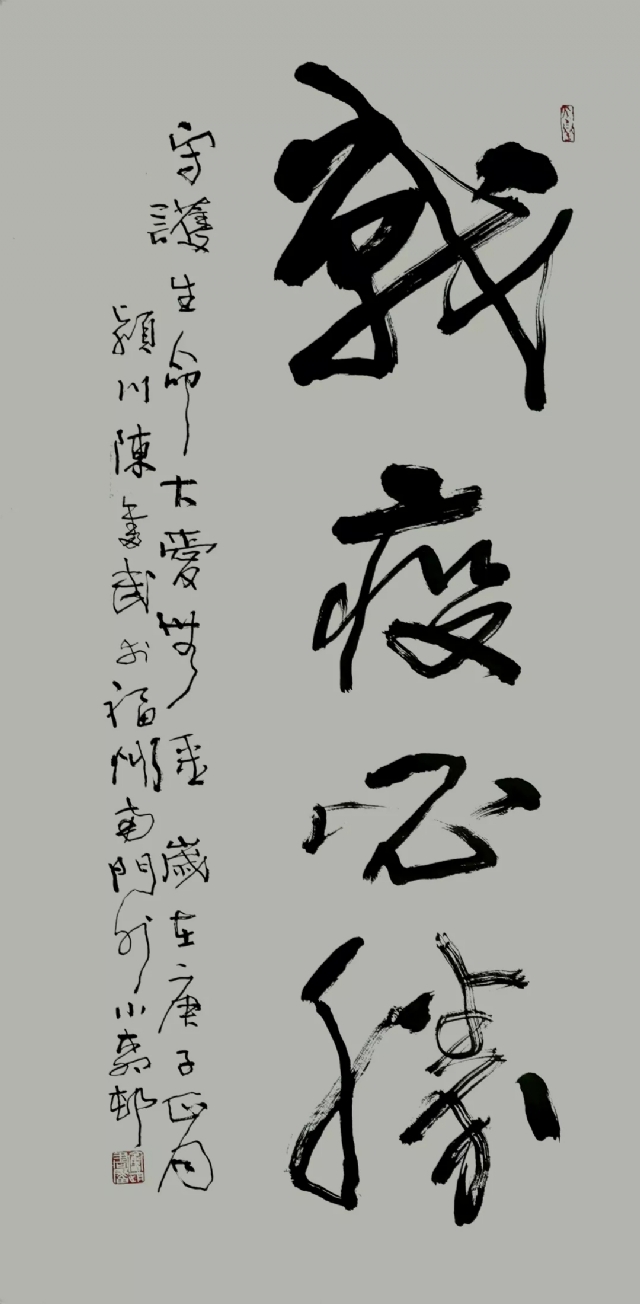 戰疫必勝
守護生命大愛無垂 歲在庚子正月
潁川陳武於福州南門外小村